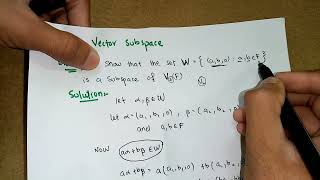 Vector Subspace
Show that the set W = { (a, b, 0) : a, b ∈ F }
is a Subspace of V₃(F)
Solution:-
let α, β ∈ W
let α = (a₁, b₁, 0) , β = (a₂, b₂, 0
and a, b ∈ F
Now aα+bβ ∈ W
aα+bβ = a(a₁, b₁, 0) + b(a₂, b₂,